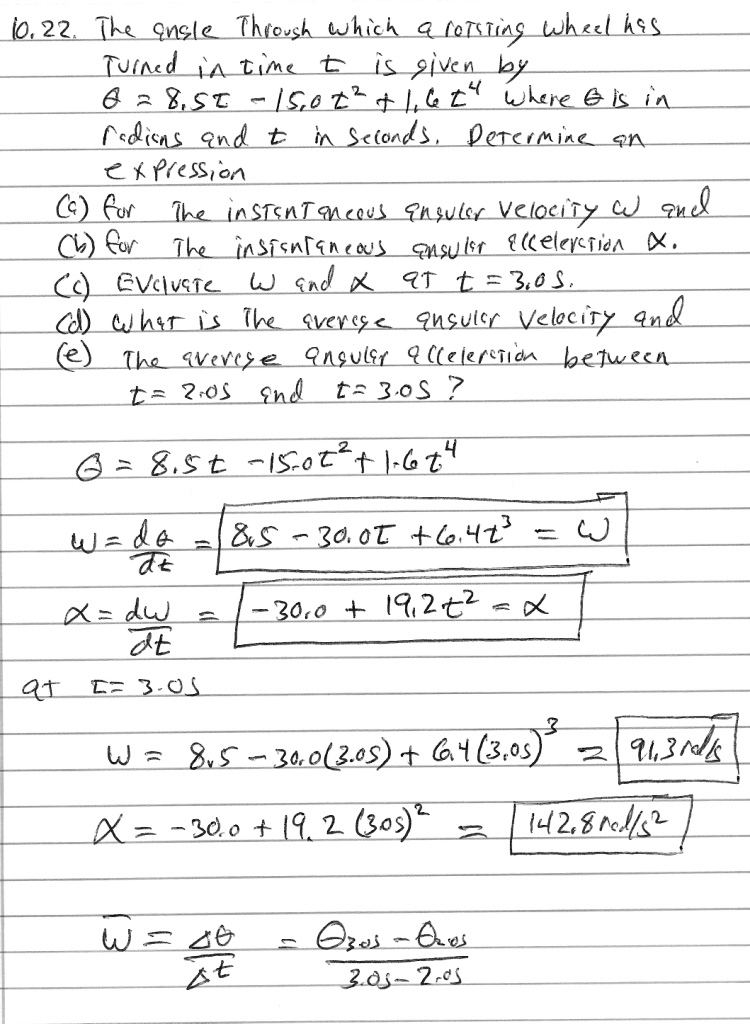 10.22. The angle Through which a rotating wheel has
Turned in time t is given by
θ = 8.5t - 15.0t² + 1.6t⁴ where θ is in
radians and t in seconds. Determine an
expression
(a) for The instantaneous angular velocity ω and
(b) for The instantaneous angular acceleration α.
(c) Evaluate ω and α at t = 3.0s.
(d) what is The average angular velocity and
(e) The average angular acceleration between
t = 2.0s and t = 3.0s ?
θ = 8.5t - 15.0t² + 1.6t⁴
ω = dθ/dt = 8.5 - 30.0t + 6.4t³ = ω
α = dω/dt = -30.0 + 19.2t² = α
at t = 3.0s
ω = 8.5 - 30.0(3.0s) + 6.4(3.0s)³ = 91.3 rad/s
α = -30.0 + 19.2(3.0s)² = 142.8 rad/s²
ω̅ = Δθ/Δt = θ3.0s - θ2.0s / 3.0s - 2.0s